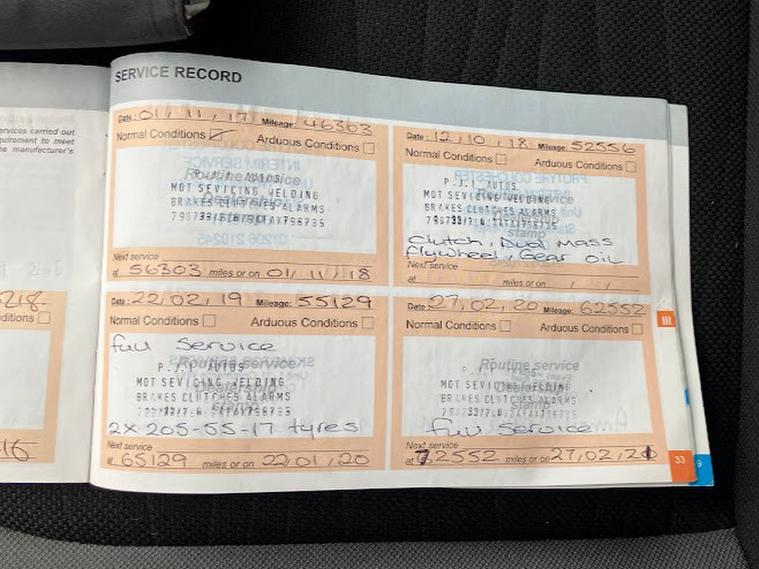 SERVICE RECORD
ervices carried out
quirement to meet
he manufacturer's
218.
ditions
16
Date: 01, 11, 17 Mileage: 46303
Normal Conditions Arduous Conditions
Routine service
P.J.I AUTOS
MOT SEVICING WELDING
BRAKES CLUTCHES ALARMS
Next service
at 56303 miles or on 01, 11, 18
Date: 12, 10, 18 Mileage: 52556
Normal Conditions Arduous Conditions
P.J.I AUTOS
MOT SEVICING WELDING
BRAKES CLUTCHES ALARMS
stamp
Clutch, Dual Mass
flywheel, Gear oil
Next service
at miles or on / /
Date: 22, 02, 19 Mileage: 55129
Normal Conditions Arduous Conditions
full Service
Routine service
P.J.I AUTOS
MOT SEVICING WELDING
BRAKES CLUTCHES ALARMS
2x 205-55-17 tyres
Next service
at 65129 miles or on 22, 01, 20
Date: 27, 02, 20 Mileage: 62552
Normal Conditions Arduous Conditions
Routine service
Dealership
MOT SEVICING WELDING
BRAKES CLUTCHES ALARMS
full Service
Next service
at 72552 miles or on 27, 02, 21
33
9